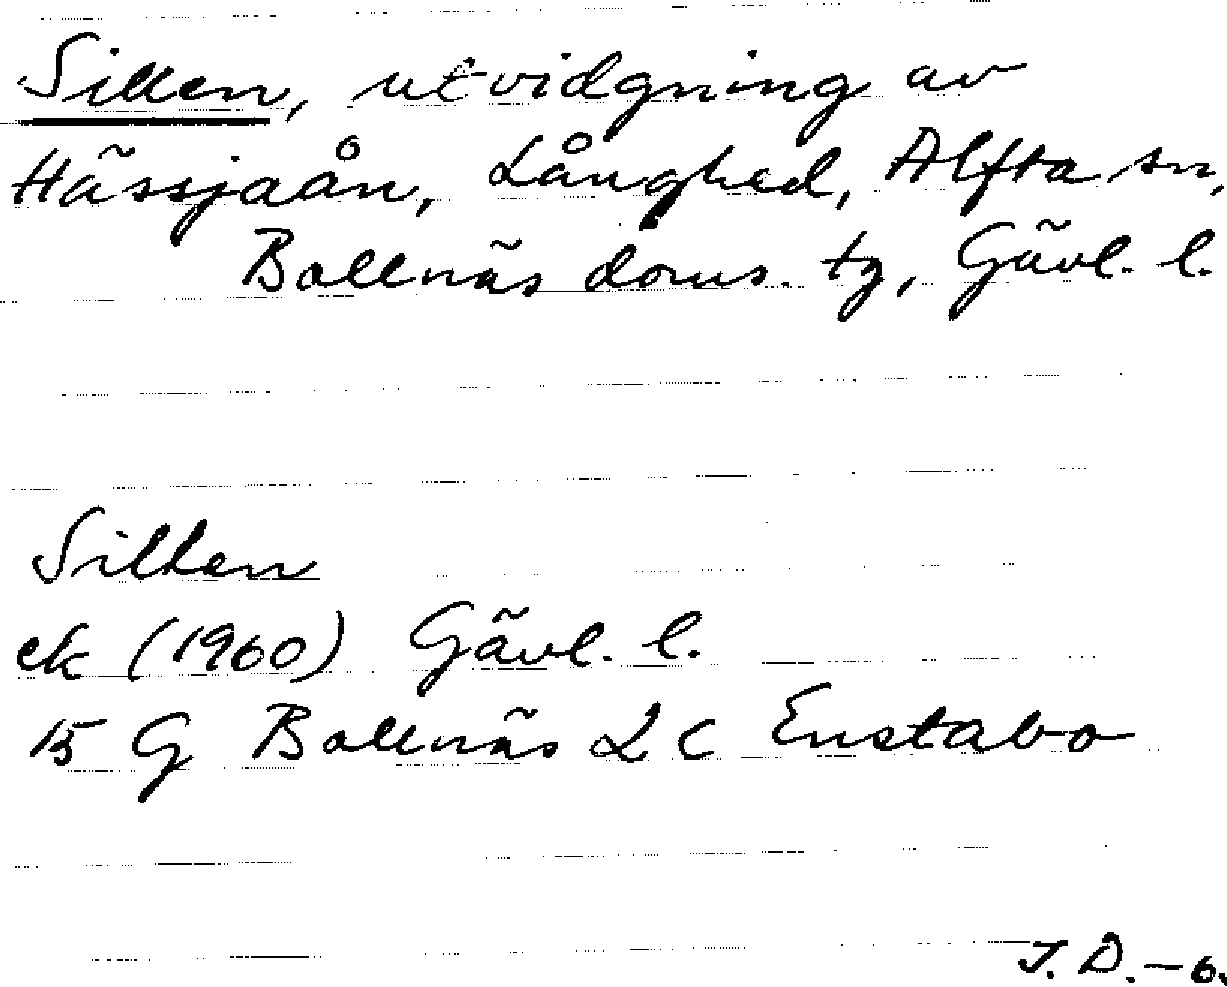 Sillen, utvidgning av
Hässjaån, Långhed, Alfta sn,
Bollnäs doms. tg, Gävl. l.
Sillen
ek (1960) Gävl. l.
15 G Bollnäs 2 c Enstabo
J. D. – 6.